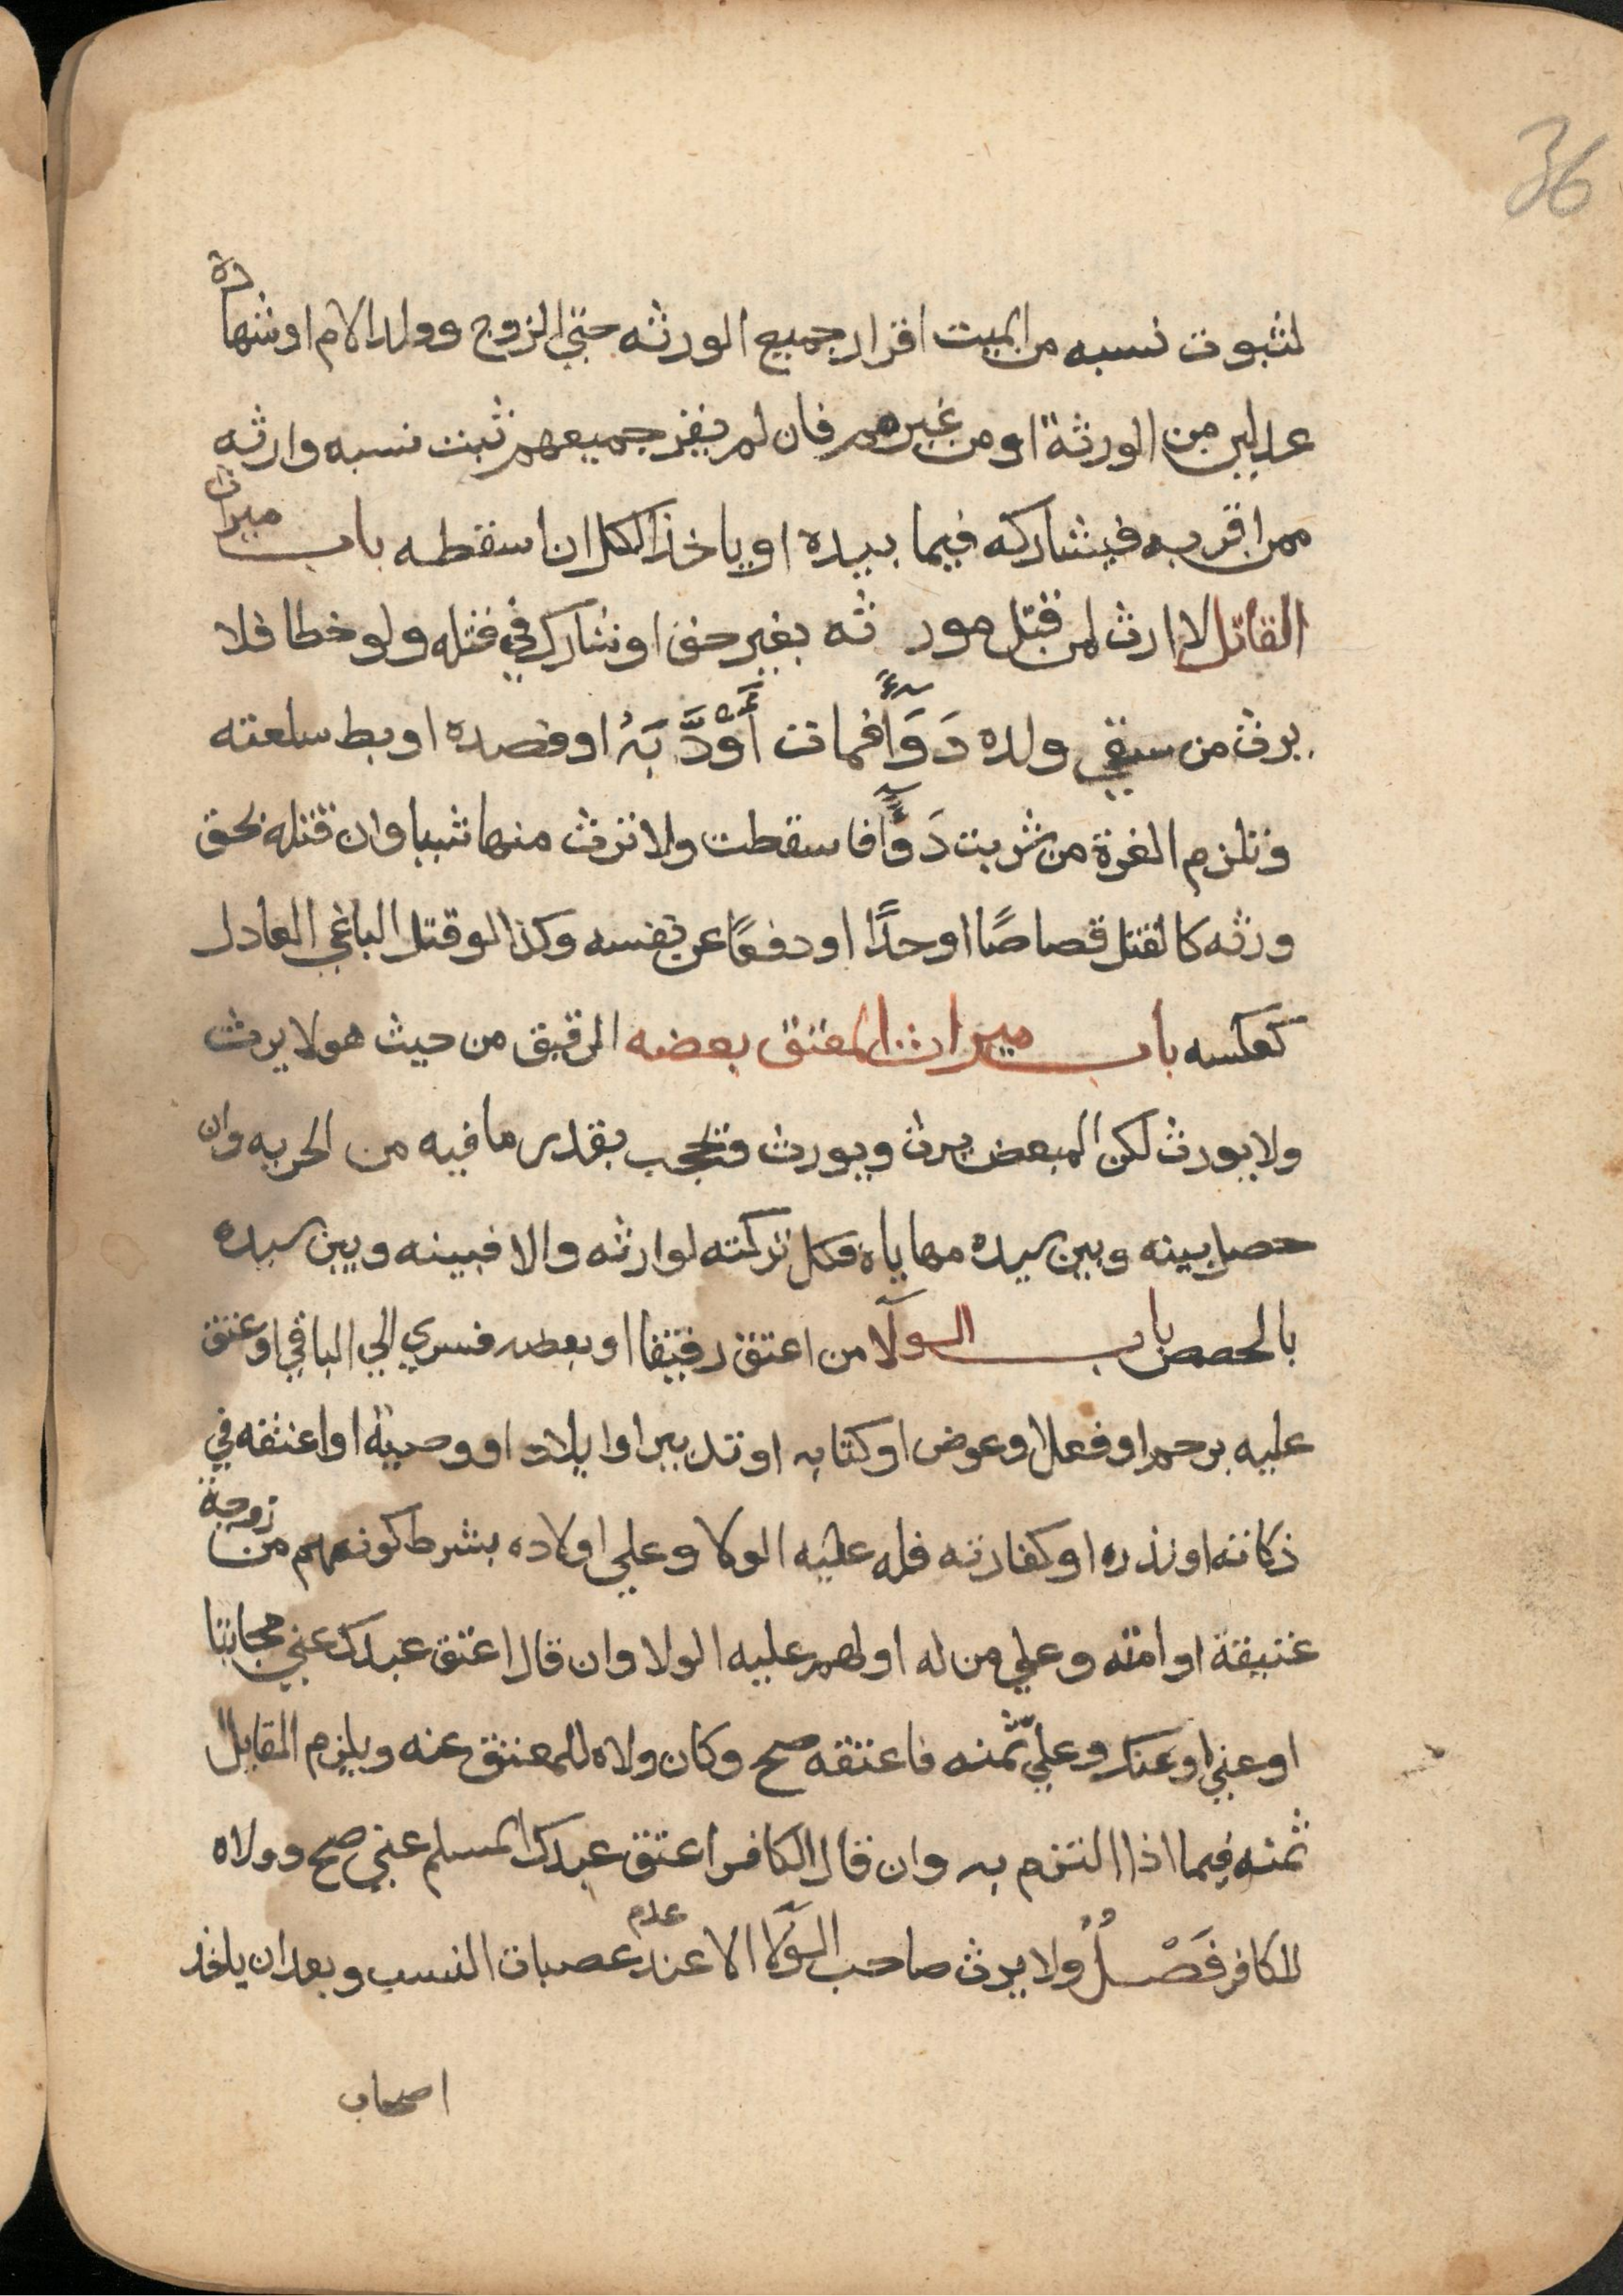 36
لثبوت نسبه من الميت اقرار جميع الورثه حتي الزوج وولد الام او شهادة
عدلين من الورثة او من غيرهم فان لم يقر جميعهم ثبت نسبه وارثه
ممن اقر به فيشاركه فيما بيده او ياخذ الكل ان اسقطه باب ميراث
القاتل لا ارث لمن قتل مورثه بغير حق او شارك في قتله ولو خطا فلا
يرث من سقي ولده دَوَآءً فمات أَوْ أَدَّبَهُ او فصده او بط سلعته
وتلزم الغرة من شربت دَوَآءً فاسقطت ولا ترث منها شييا وان قتله بحق
ورثه كالقتل قصاصًا او حدًّا او دفعًا عن نفسه وكذا لو قتل الباغي العادل
كعكسه باب ميراث المعتق بعضه الرقيق من حيث هو لا يرث
ولا يورث لكن المبعض يرث ويورث ويحجب بقدر ما فيه من الحريه وان
حصل بينه وبين سيده مهاياه فكل تركته لوارثه والا فبينه وبين سيده
بالحصص باب الولآ من اعتق رقيقا او بعضه فسري الي الباقي او عتق
عليه برحم او فعل او عوض او كتابه او تدبير او ايلاد او وصية او اعتقه في
زكاته او نذره او كفارته فله عليه الولا وعلي اولاده بشرط كونهم من زوجة
عتيقة او امته وعلي من له او لهم عليه الولا وان قال اعتق عبدك عني مجانا
او عني او عنك وعليّ ثمنه فاعتقه صح وكان ولاه للمعتق عنه ويلزم القايل
ثمنه فيما اذا التزم به وان قال الكافر اعتق عبدك المسلم عني صح وولاه
للكافر فَصْلٌ ولا يرث صاحب الوَلآ الا عند عدم عصبات النسب وبعد ان ياخذ
اصحاب